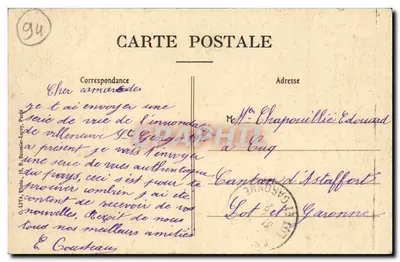 94
CARTE POSTALE
Correspondance
Adresse
Cher camarades
je t'ai envoyer une
serie de vue de l'inondé
de villeneuve St Georges
a present je vais t'envoyer
une serie de vues authentique
du pays, ceci s'est pour te
prouver combien j'ai ete
content de recevoir de vos
nouvelles. Reçoit de nous
tous nos meilleurs amitiés
E Cousteau
M Chapouillié Edouard
a Cuq
Canton d'Astaffort
Lot et Garonne